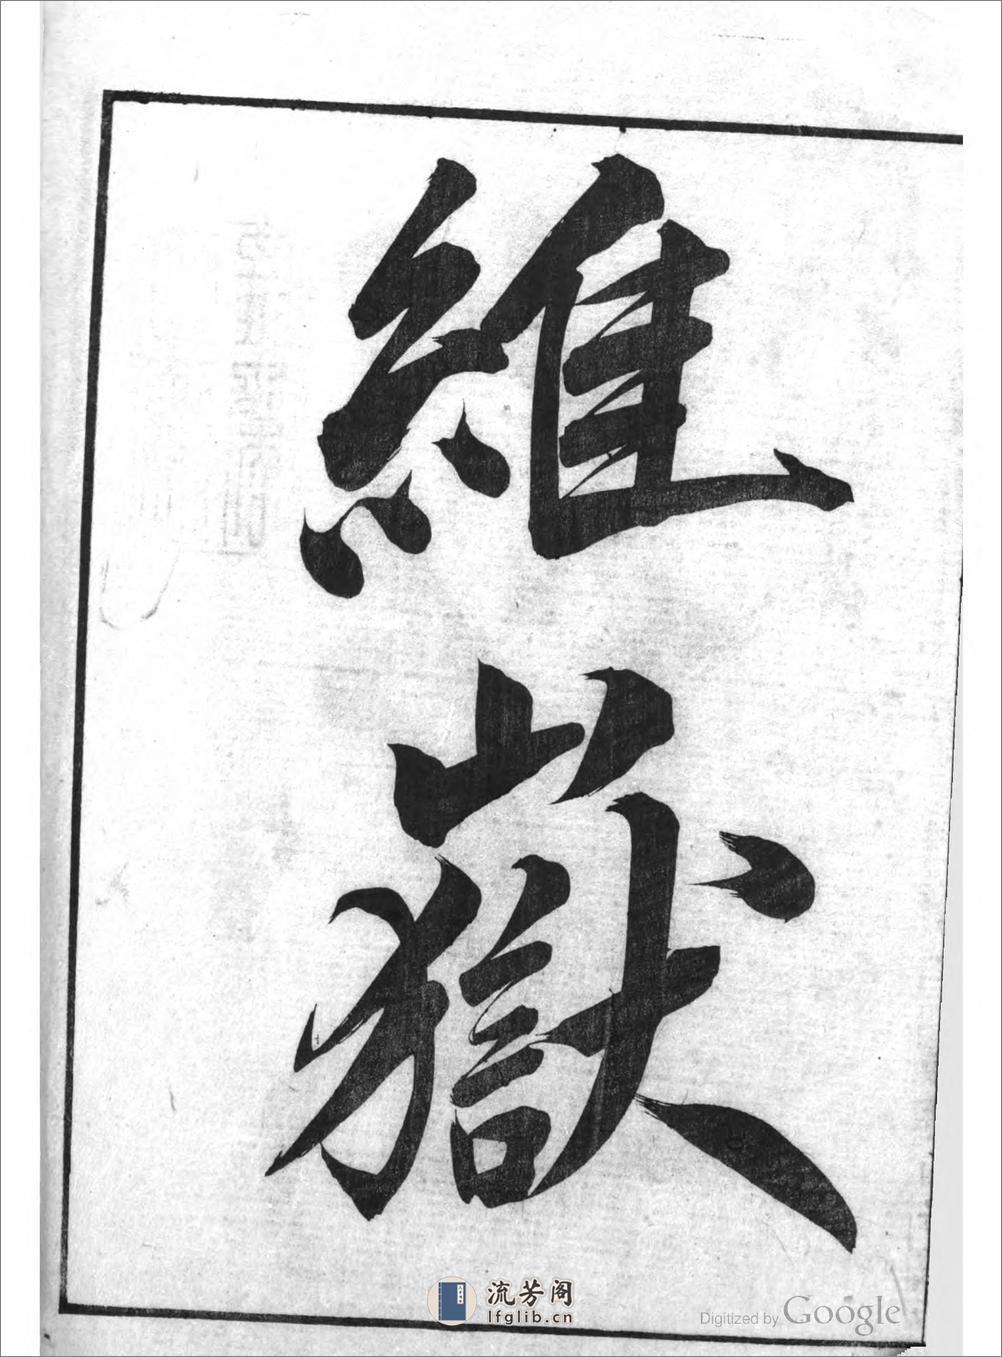 維嶽
流芳阁
lfglib.cn
Digitized by Google